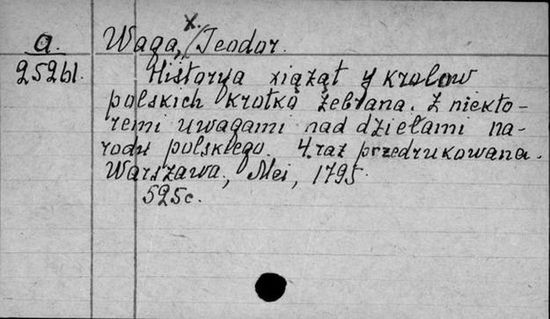 a. Waga, x. Teodor.
25261. Historya xiążąt y krolow
polskich krotko zebrana. Z niekto-
remi uwagami nad dziełami na-
rodu polskiego. 4. raz przedrukowana.
Warszawa, Mei, 1795.
525c.